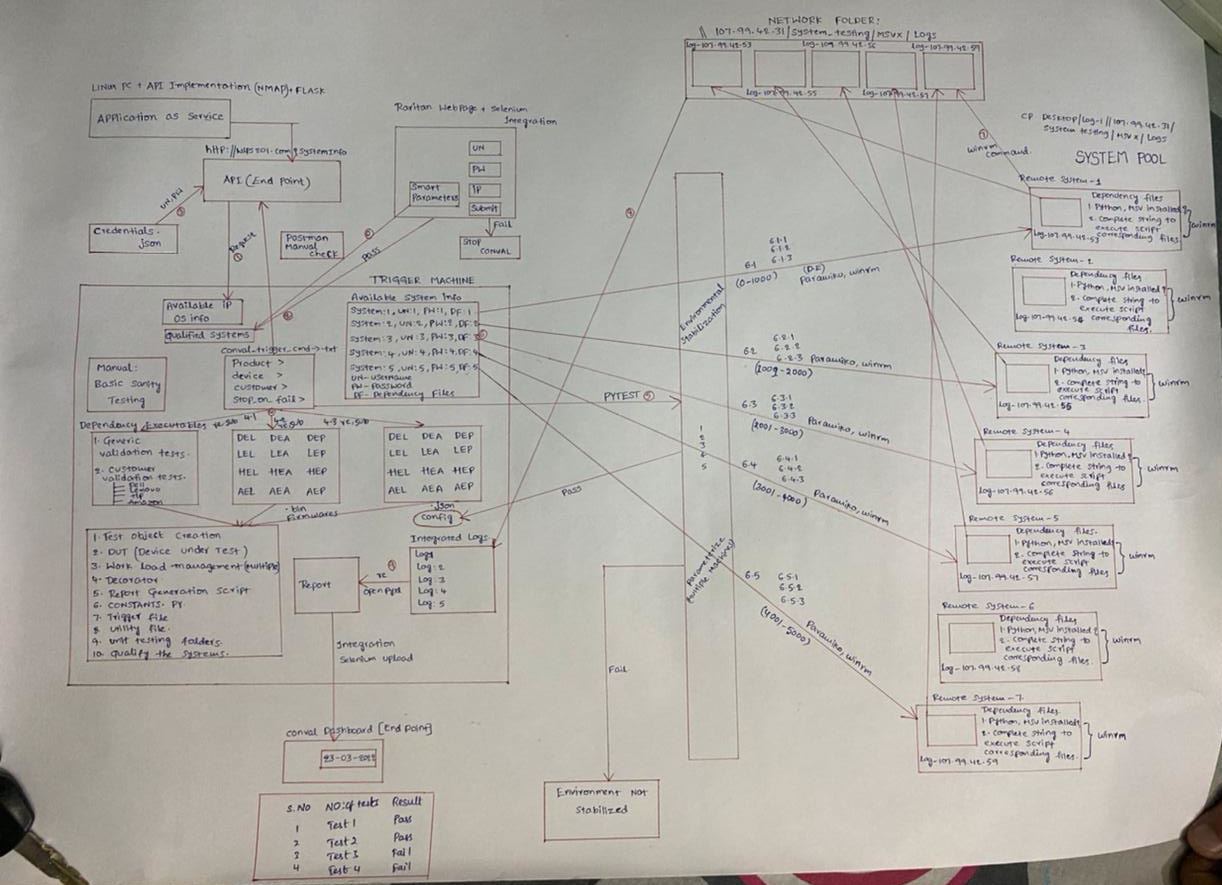 NETWORK FOLDER:
\\ 107.99.42.31/System_testing/MSVX/Logs
Log-107.99.42.53
Log-107.99.42.56
Log-107.99.42.59
Log-107.99.42.55
Log-107.99.42.57
LINUX PC + API Implementation (NMAP)+ FLASK
Application as Service
http://
SystemInfo
API (End Point)
UN, PW
Credentials.
json
Request
Postman
Manual
check
Raritan Webpage + Selenium
Integration
UN
PW
IP
Submit
Smart
Parameters
Fail
Stop
CONVAL
Pass
CP Desktop/Log-1 //107.99.42.31/
System testing/MSVX/Logs
winrm
command.
SYSTEM POOL
TRIGGER MACHINE
Available IP
OS info
Qualified Systems
Available System Info
System:1, UN:1, PW:1, DF:1
System:2, UN:2, PW:2, DF:2
System:3, UN:3, PW:3, DF:3
System:4, UN:4, PW:4, DF:4
System:5, UN:5, PW:5, DF:5
UN-Username
PW-Password
DF-Dependency Files
Manual:
Basic Sanity
Testing
conval_trigger_cmd->.txt
Product >
device >
customer >
stop_on_fail >
PYTEST 5
Dependency Executables
4.1
4.3
1. Generic
validation tests.
2. Customer
validation tests.
Dell
Lenovo
HP
Amazon
DEL DEA DEP
LEL LEA LEP
HEL HEA HEP
AEL AEA AEP
DEL DEA DEP
LEL LEA LEP
HEL HEA HEP
AEL AEA AEP
.bin
Firmwares
.json
config
1. Test object creation
2. DUT (Device under Test)
3. Work Load-management (multiple)
4. Decorator
5. Report Generation Script
6. CONSTANTS. PY
7. Trigger file
8. Utility file.
9. unit testing folders.
10. Qualify the systems.
Report
Integrated Logs
Log1
Log:2
Log:3
Log:4
Log:5
Integration
Selenium upload
conval Dashboard [End Point]
23-03-2022
S.NO NO:of tests Result
1 Test 1 Pass
2 Test 2 Pass
3 Test 3 Fail
4 Test 4 Fail
Environmental
Stabilization
1
2
3
4
5
Pass
Parametrize
(multiple machines)
Fail
Environment Not
Stabilized
6.1
6.1.1
6.1.2
6.1.3
(0-1000)
(DF)
Paramiko, winrm
6.2
6.2.1
6.2.2
6.2.3
(1001-2000)
Paramiko, winrm
6.3
6.3.1
6.3.2
6.3.3
(2001-3000)
Paramiko, winrm
6.4
6.4.1
6.4.2
6.4.3
(3001-4000)
Paramiko, winrm
6.5
6.5.1
6.5.2
6.5.3
(4001-5000)
Paramiko, winrm
Remote System-1
Dependency files
1. Python, MSV installed?
2. complete string to
execute script
corresponding files.
Log-107.99.42.53
winrm
Remote System-2
Dependency files
1. Python, MSV installed?
2. complete string to
execute script
corresponding
files.
Log-107.99.42.54
winrm
Remote System-3
Dependency files
1. Python, MSV installed?
2. complete string to
execute script
corresponding files.
Log-107.99.42.55
winrm
Remote System-4
Dependency files
1. Python, MSV installed?
2. complete string to
execute script
corresponding files.
Log-107.99.42.56
winrm
Remote System-5
Dependency files.
1. Python, MSV installed?
2. complete string to
execute script
corresponding files
Log-107.99.42.57
winrm
Remote System-6
Dependency files
1. Python, MSV installed?
2. complete string to
execute script
corresponding files.
Log-107.99.42.58
winrm
Remote System-7
Dependency files
1. Python, MSV installed?
2. complete string to
execute script
corresponding files.
Log-107.99.42.59
winrm